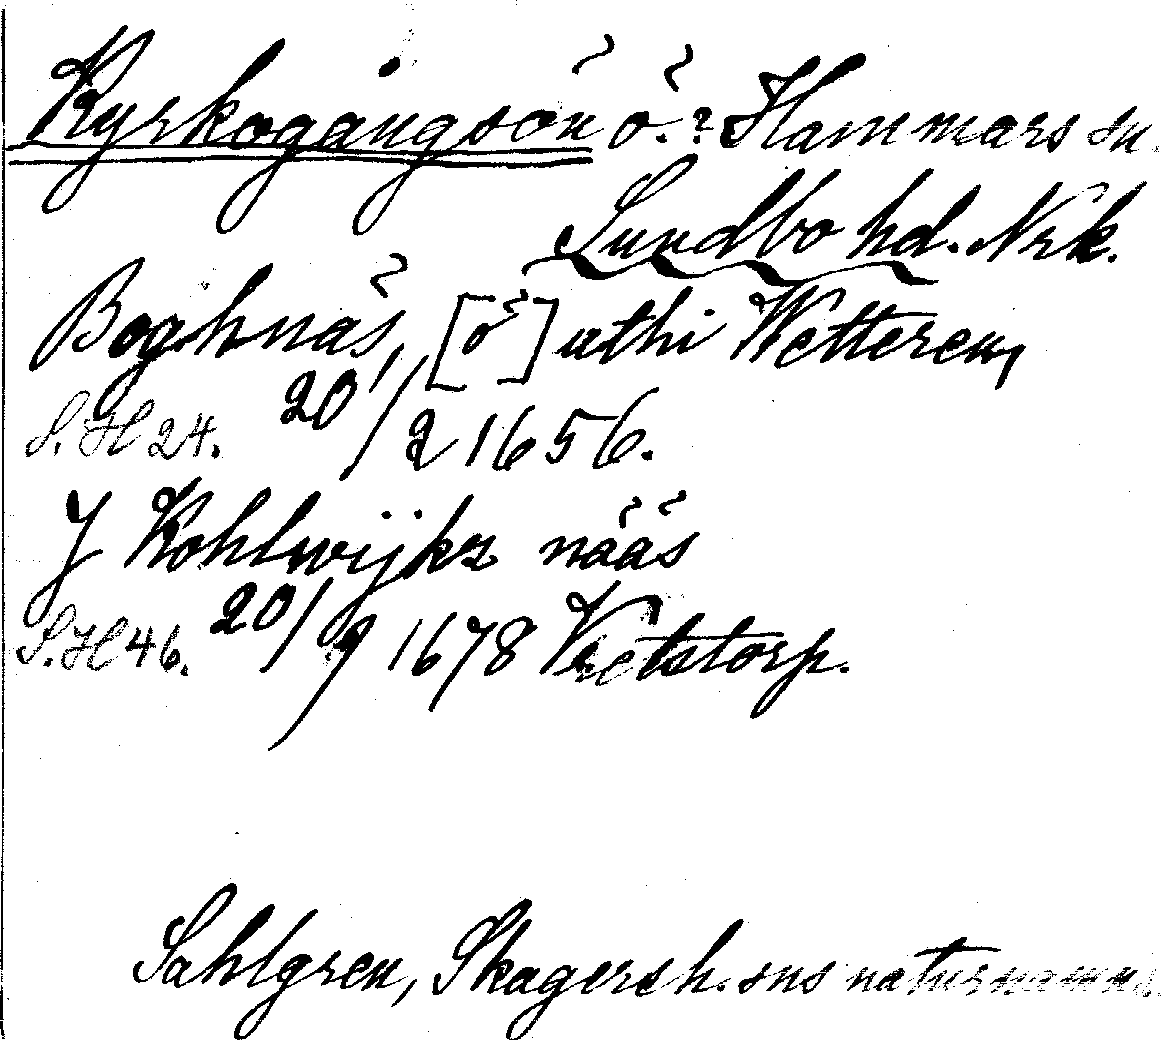 Kyrkogångsön ö.? Hammars sn.
Sundbo hd. Nrk.
Boghnäs, [ö] uthi Wetteren,
S.H 24. 20/2 1656.
J Kohlwijkz nääs
S.H 46. 20/9 1678 Vretstorp.
Sahlgren, Skagersh. sns naturnamn.